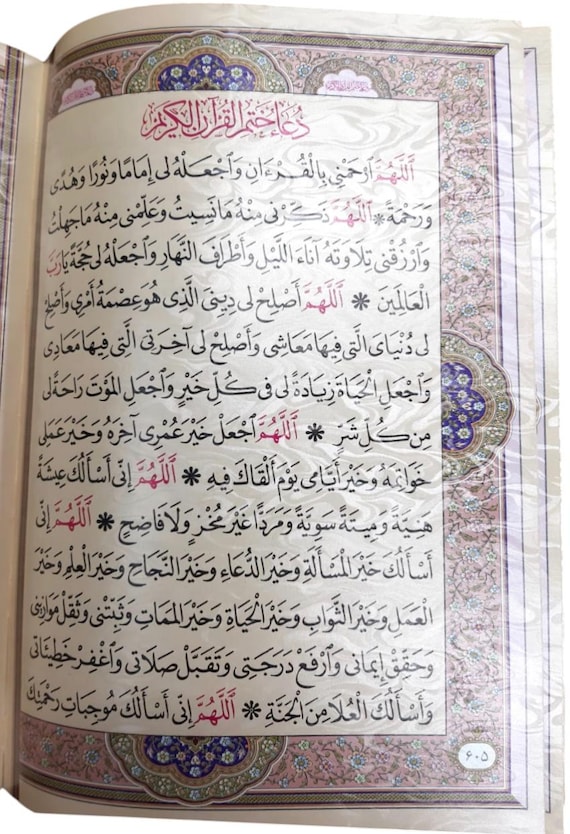 دُعَاءُ خَتْمِ الْقُرْآنِ الْكَرِيمِ
اَللَّهُمَّ ٱرْحَمْنِي بِالْقُرْءَانِ وَٱجْعَلْهُ لِي إِمَامًا وَنُورًا وَهُدًى
وَرَحْمَةً * اَللَّهُمَّ ذَكِّرْنِي مِنْهُ مَا نَسِيتُ وَعَلِّمْنِي مِنْهُ مَا جَهِلْتُ
وَٱرْزُقْنِي تِلَاوَتَهُ آنَاءَ اللَّيْلِ وَأَطْرَافَ النَّهَارِ وَٱجْعَلْهُ لِي حُجَّةً يَا رَبَّ
الْعَالَمِينَ * اَللَّهُمَّ أَصْلِحْ لِي دِينِيَ الَّذِي هُوَ عِصْمَةُ أَمْرِي وَأَصْلِحْ
لِي دُنْيَايَ الَّتِي فِيهَا مَعَاشِي وَأَصْلِحْ لِي آخِرَتِي الَّتِي فِيهَا مَعَادِي
وَٱجْعَلِ الْحَيَاةَ زِيَادَةً لِي فِي كُلِّ خَيْرٍ وَٱجْعَلِ الْمَوْتَ رَاحَةً لِي
مِن كُلِّ شَرٍّ * اَللَّهُمَّ ٱجْعَلْ خَيْرَ عُمْرِي آخِرَهُ وَخَيْرَ عَمَلِي
خَوَاتِمَهُ وَخَيْرَ أَيَّامِي يَوْمَ أَلْقَاكَ فِيهِ * اَللَّهُمَّ إِنِّي أَسْأَلُكَ عِيشَةً
هَنِيَّةً وَمِيتَةً سَوِيَّةً وَمَرَدًّا غَيْرَ مُخْزٍ وَلَا فَاضِحٍ * اَللَّهُمَّ إِنِّي
أَسْأَلُكَ خَيْرَ الْمَسْأَلَةِ وَخَيْرَ الدُّعَاءِ وَخَيْرَ النَّجَاحِ وَخَيْرَ الْعِلْمِ وَخَيْرَ
الْعَمَلِ وَخَيْرَ الثَّوَابِ وَخَيْرَ الْحَيَاةِ وَخَيْرَ الْمَمَاتِ وَثَبِّتْنِي وَثَقِّلْ مَوَازِينِي
وَحَقِّقْ إِيمَانِي وَٱرْفَعْ دَرَجَتِي وَتَقَبَّلْ صَلَاتِي وَٱغْفِرْ خَطِيئَاتِي
وَأَسْأَلُكَ الْعُلَا مِنَ الْجَنَّةِ * اَللَّهُمَّ إِنِّي أَسْأَلُكَ مُوجِبَاتِ رَحْمَتِكَ
۶۰۵